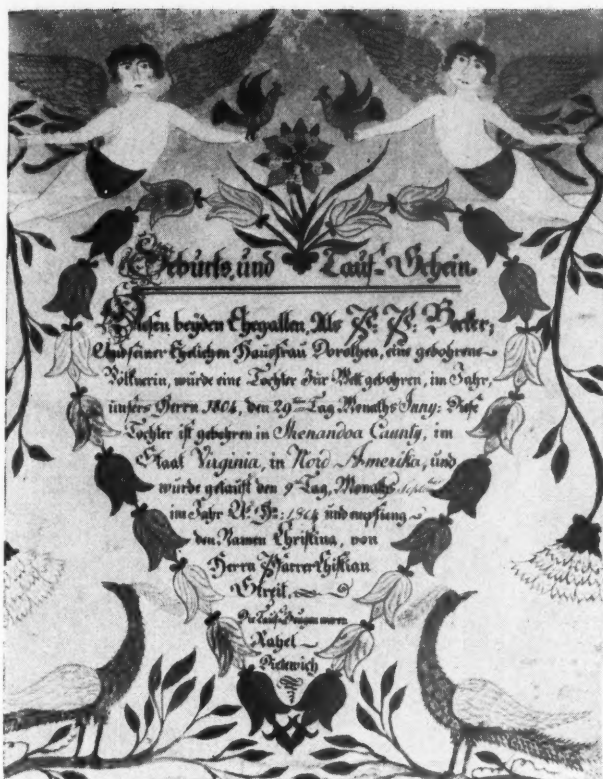 Geburts, und Tauf-Schein
Diesen beyden Ehegatten, Als P: P: Becker,
Und seiner Ehelichen Hausfrau Dorothea, eine gebohrene
Völknerin, wurde eine Tochter Zur Welt gebohren, im Jahr,
unsers Herrn 1804, den 29ten Tag Monaths Juny: Diese
Tochter ist gebohren in Shenandoa Caunty, im
Staat Virginia, in Nord Amerika, und
wurde getauft den 9ten Tag, Monaths
im Jahr U: H: 1804 und empfieng
den Namen Christina, von
Herrn Pfarrer Christian
Streit,
Die Tauf-Zeugen waren
Rahel
Dieterich